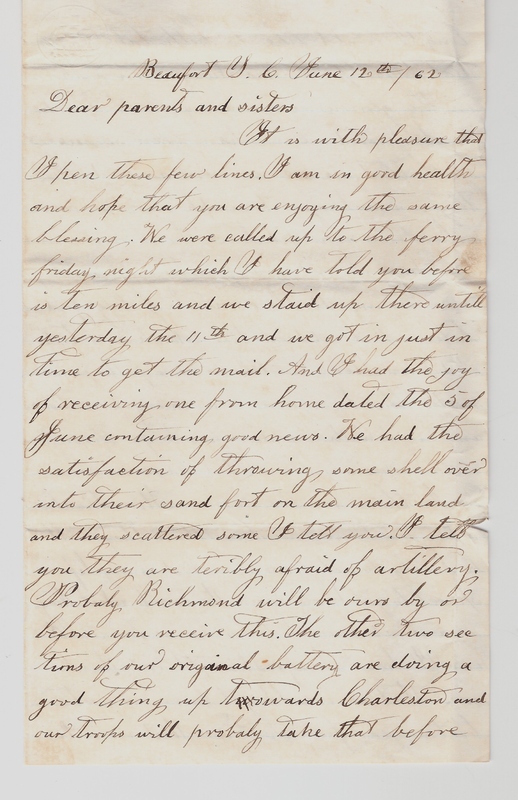 Beaufort S. C. June 12th / 62
Dear parents and sisters
It is with pleasure that
I pen these few lines. I am in good health
and hope that you are enjoying the same
blessing. We were called up to the ferry
friday night which I have told you before
is ten miles and we staid up there untill
yesterday the 11th and we got in just in
time to get the mail. And I had the joy
of receiving one from home dated the 5 of
June containing good news. We had the
satisfaction of throwing some shell over
into their sand fort on the main land
and they scattered some I tell you. I tell
you they are teribly afraid of artillery.
Probaly Richmond will be ours by or
before you receive this. The other two sec
tions of our original battery are doing a
good thing up towards Charleston and
our troops will probaly take that before